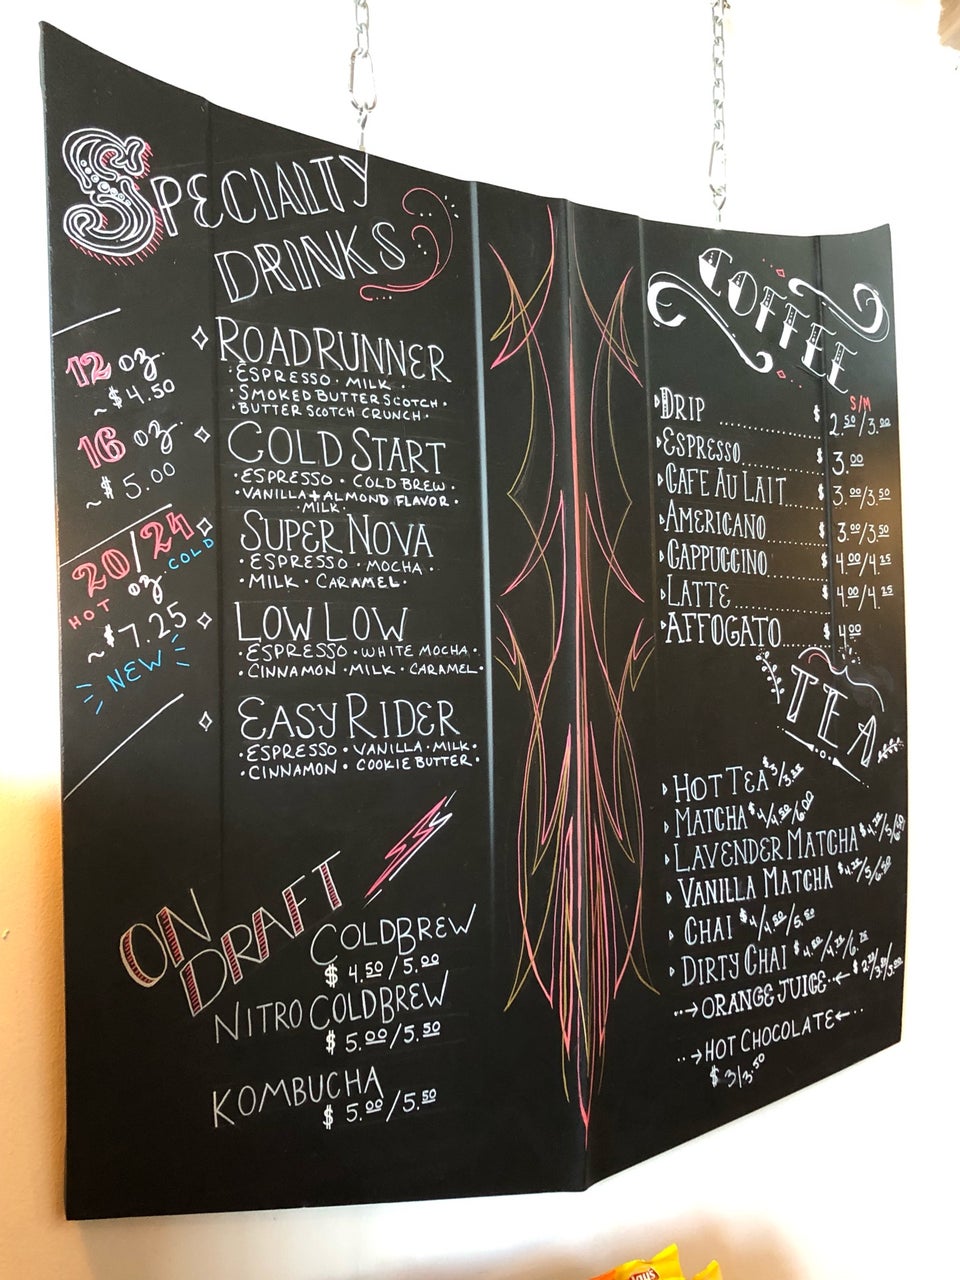 SPECIALTY
DRINKS
12 oz.
~$4.50
16 oz.
~$5.00
20/24
HOT oz. COLD
~$7.25
NEW
ROADRUNNER
ESPRESSO · MILK ·
SMOKED BUTTERSCOTCH ·
· BUTTERSCOTCH CRUNCH ·
COLD START
· ESPRESSO · COLD BREW ·
· VANILLA + ALMOND FLAVOR ·
MILK ·
SUPER NOVA
· ESPRESSO · MOCHA ·
· MILK · CARAMEL ·
LOW LOW
· ESPRESSO · WHITE MOCHA ·
· CINNAMON · MILK · CARAMEL ·
EASY RIDER
· ESPRESSO · VANILLA · MILK ·
· CINNAMON · COOKIE BUTTER ·
ON
DRAFT
COLDBREW
$4.50/5.00
NITRO COLDBREW
$5.00/5.50
KOMBUCHA
$5.00/5.50
COFFEE
S/M
DRIP ............ $2.50/3.00
ESPRESSO ............ $3.00
CAFE AU LAIT ............ $3.00/3.50
AMERICANO ............ $3.00/3.50
CAPPUCCINO ............ $4.00/4.25
LATTE ............ $4.00/4.25
AFFOGATO ............ $4.00
TEA
HOT TEA
MATCHA $4/4.50/6.00
LAVENDER MATCHA
VANILLA MATCHA
CHAI $4/4.50/5.50
DIRTY CHAI
→ ORANGE JUICE ←
→ HOT CHOCOLATE ←
$3/3.50